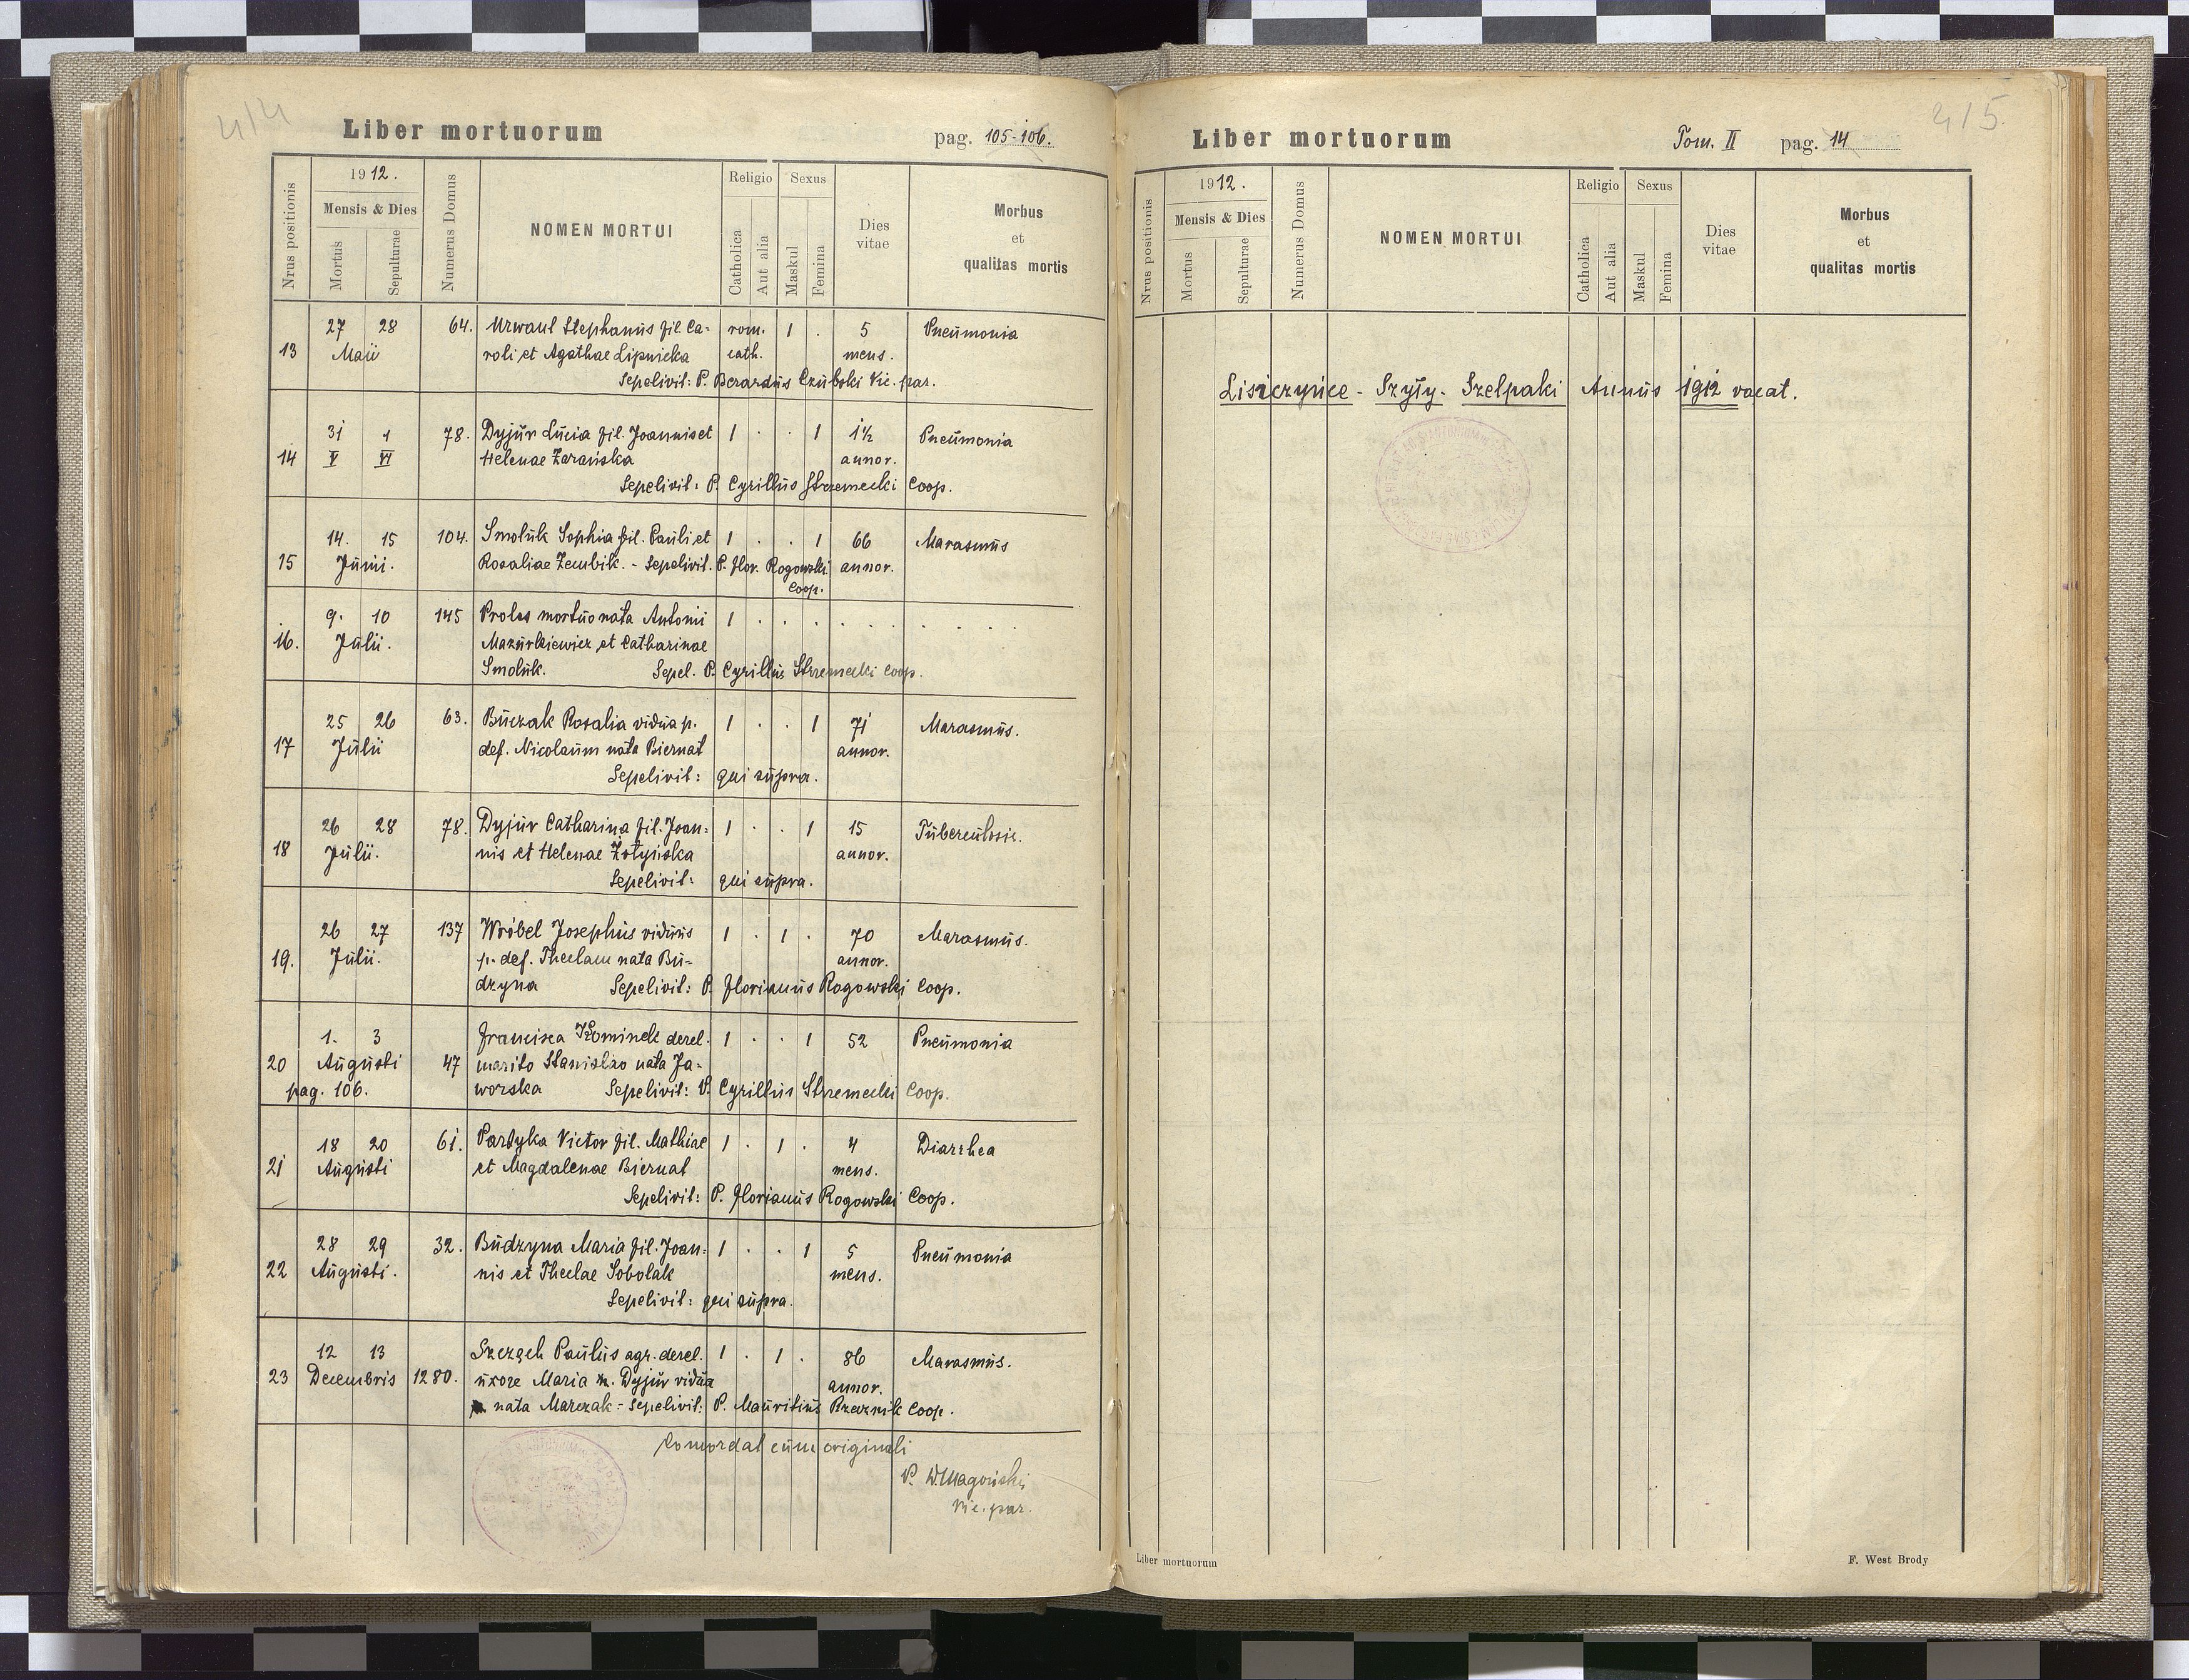 414
Liber mortuorum pag. 105-106.
Nrus positionis
1912.
Mensis & Dies
Mortus
Sepulturae
Numerus Domus
NOMEN MORTUI
Religio
Catholica
Aut alia
Sexus
Maskul
Femina
Dies
vitae
Morbus
et
qualitas mortis
27 28 64. Urwant Stephanus fil. Ca= rom. 1 . 5 Pneumonia
13 Maii roli et Agathae Lipnicka cath. mens.
Sepelivit: P. Berardus Czubski Vic. par.
31 1 78. Dyjur Lucia fil. Joannis et 1 . . 1 1½ Pneumonia
14 V VI Helenae Zarańska annor.
Sepelivit: P. Cyrillus Strzemecki Coop.
14. 15 104. Smoluk Sophia fil. Pauli et 1 . . 1 66 Marasmus
15 Junii. Rosaliae Zembik. - Sepelivit. P. Flor. Rogowski annor.
Coop.
9. 10 145 Proles mortuo nata Antonii 1 . . . . . . . .
16. Julii. Mazurkiewicz et Catharinae
Smoluk. Sepel. P. Cyrillus Strzemecki Coop.
25 26 63. Buczak Rosalia vidua p. 1 . . 1 71 Marasmus.
17 Julii def. Nicolaum nata Biernat annor.
Sepelivit: qui supra.
26 28 78. Dyjur Catharina fil. Joan= 1 . . 1 15 Tuberculosis.
18 Julii. nis et Helenae Żołyńska annor.
Sepelivit: qui supra.
26 27 137 Wróbel Josephus viduus 1 . 1 . 70 Marasmus.
19. Julii. p. def. Theclam nata Bu- annor.
dzyna Sepelivit: P. Florianus Rogowski Coop.
1. 3 Francisca Kominek derel. 1 . . 1 52 Pneumonia
20 Augusti 47 marito Stanislao nata Ja-
pag. 106. worska Sepelivit: P. Cyrillus Strzemecki Coop.
18 20 61. Partyka Victor fil. Mathiae 1 . 1 . 4 Diarrhea
21 Augusti et Magdalenae Biernat mens.
Sepelivit: P. Florianus Rogowski Coop.
28 29 32. Budzyna Maria fil. Joan= 1 . . 1 5 Pneumonia
22 Augusti. nis et Theclae Sobolak mens.
Sepelivit: qui supra.
12 13 Szczęch Paulus agr. derel. 1 . 1 . 86 Marasmus.
23 Decembris 1280. uxore Maria n. Dyjur vidua annor.
nata Marczak = Sepelivit: P. Mauritius Rzeznik Coop.
Concordat cum originali
P. W. Magoński
Vic. par.
415.
Liber mortuorum Tom. II pag. 14
Nrus positionis
1912.
Mensis & Dies
Mortus
Sepulturae
Numerus Domus
NOMEN MORTUI
Religio
Catholica
Aut alia
Sexus
Maskul
Femina
Dies
vitae
Morbus
et
qualitas mortis
Lisiczyńce - Szyły - Szelpaki Annus 1912 vacat.
Liber mortuorum F. West Brody